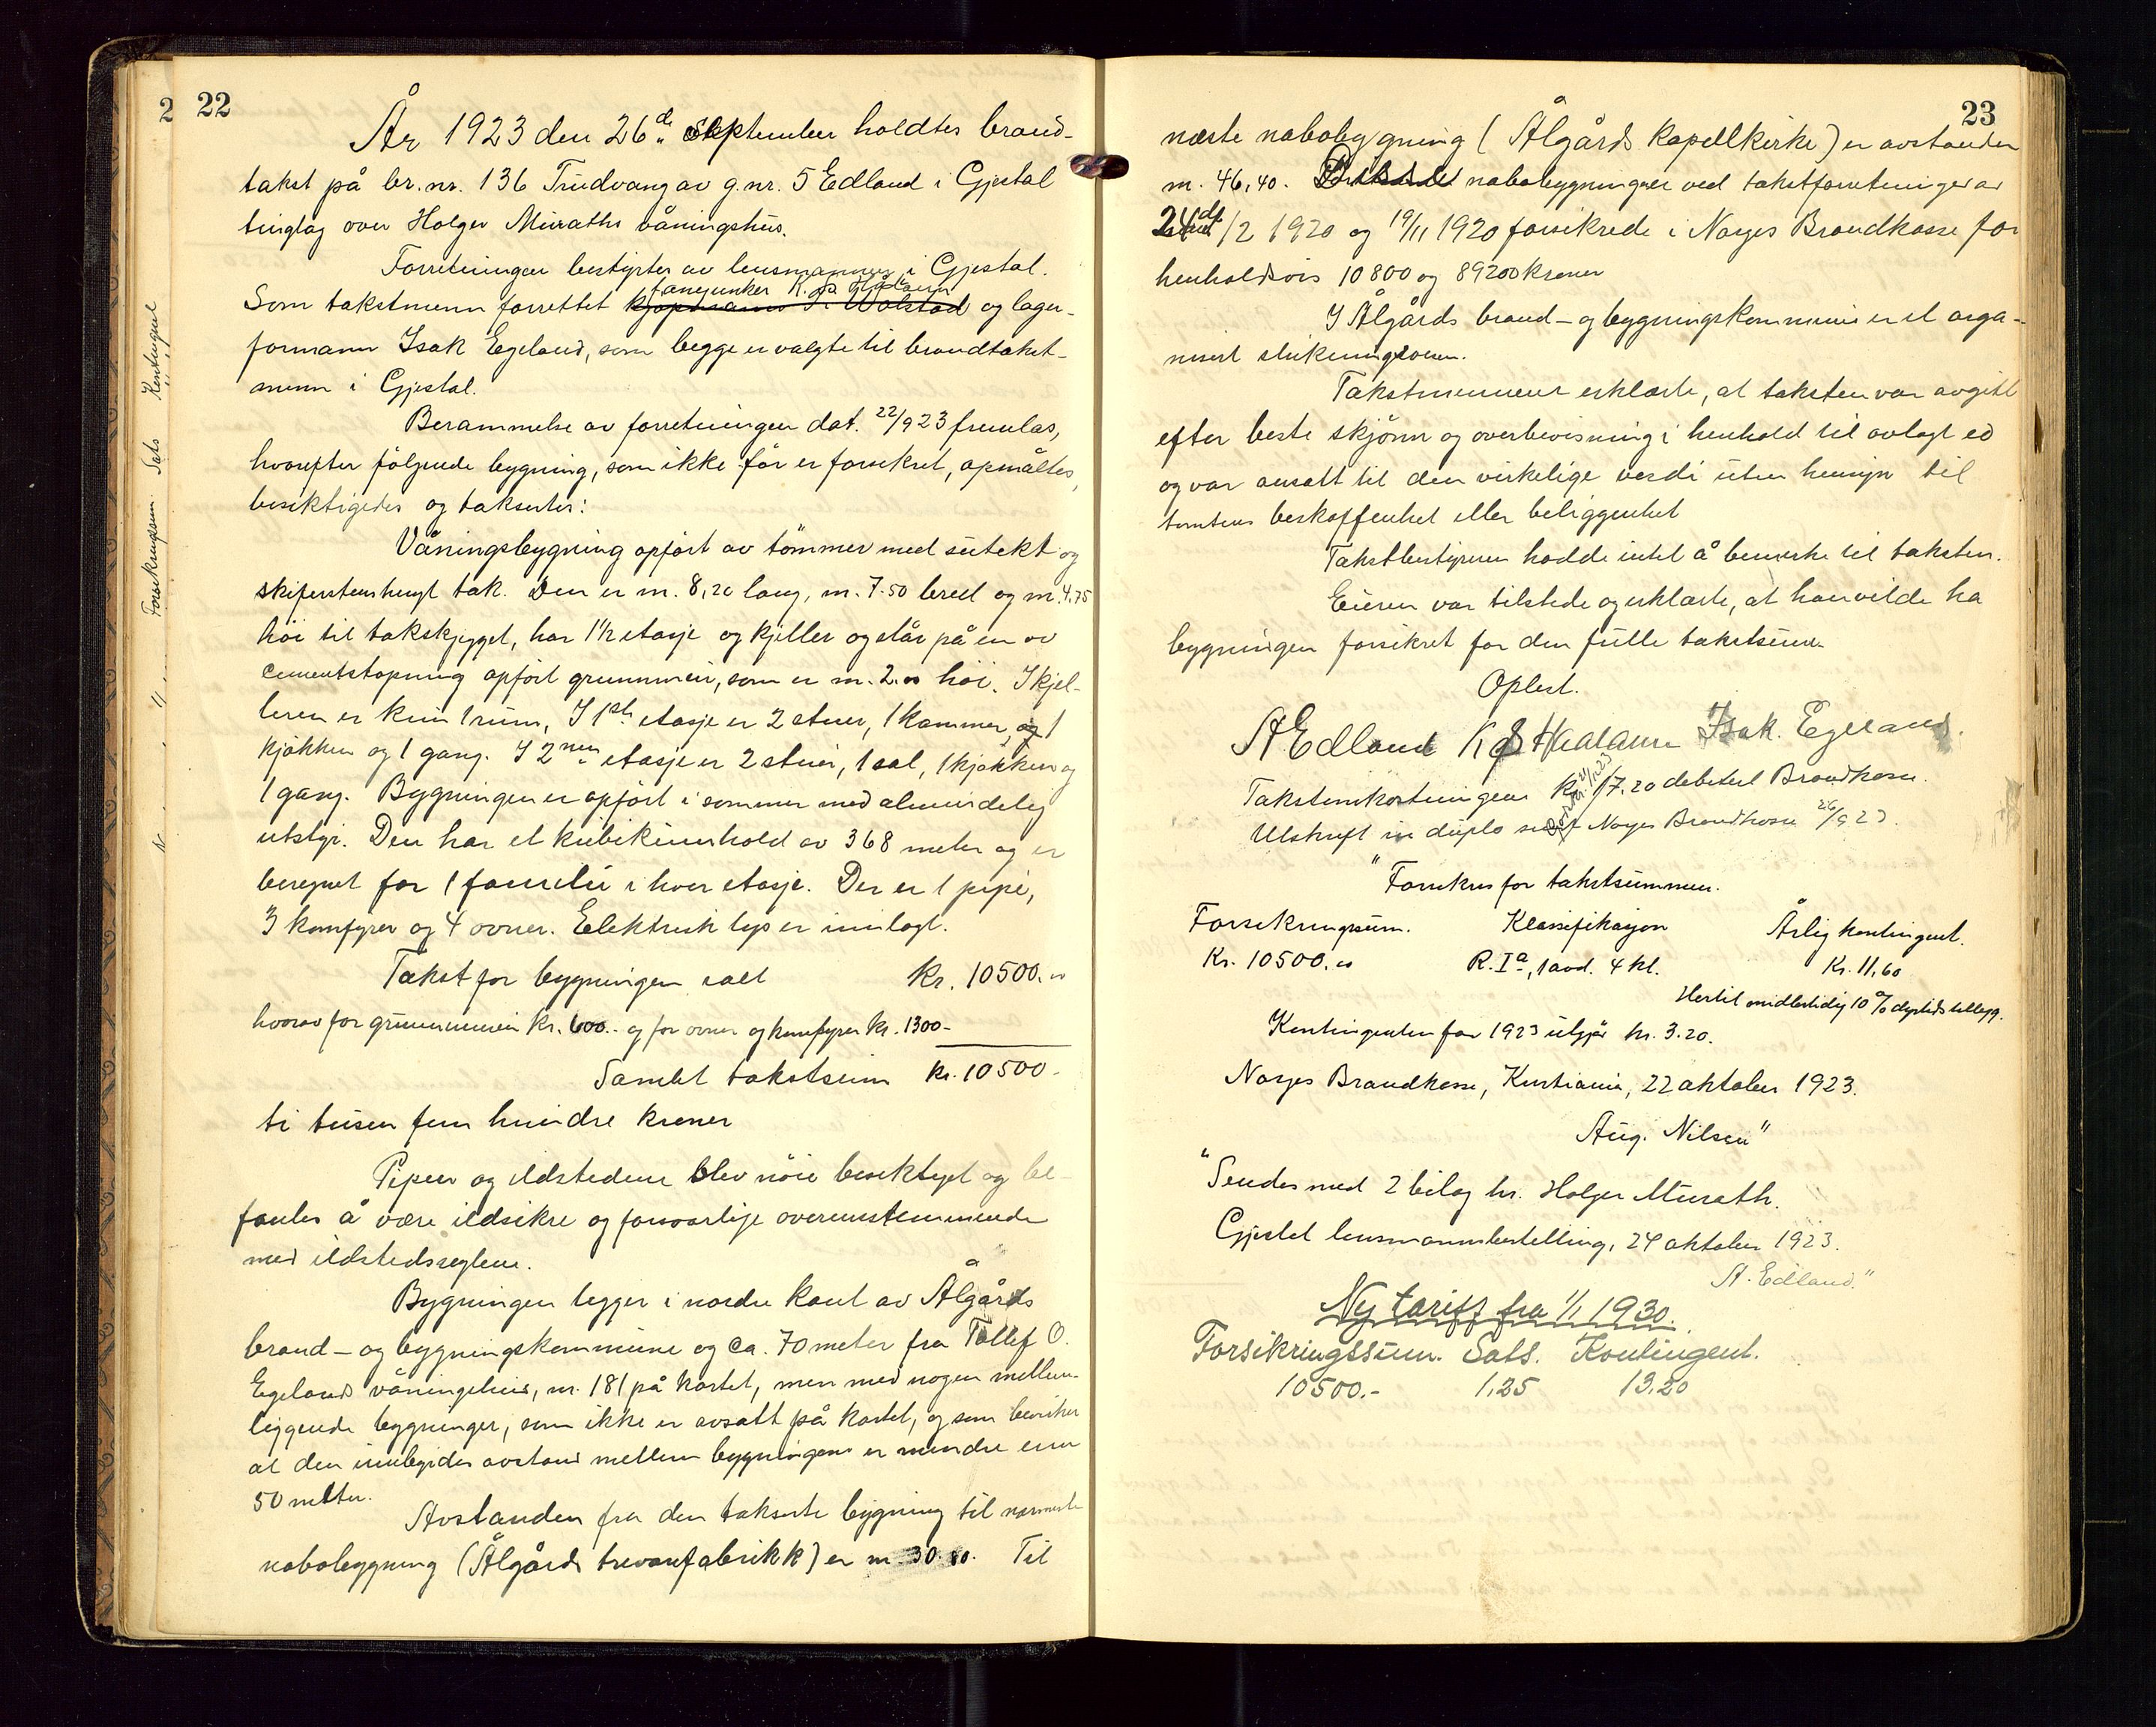 22
År 1923 den 26de September holdtes brand-
takst på br.nr. 136 Trudvang av g.nr. 5 Edland i Gjestal
tinglag over Holger Muraths våningshus.
Forretningen bestyrtes av lensmannen i Gjestal.
fanejunker K.
Som takstmenn forrettet kjøpmann Wolstad og lager-
formann Isak Egeland, som begge er valgte til brandtakst-
menn i Gjestal.
Berammelse av forretningen dat. 22/9 23 fremlas,
hvorefter følgende bygning, som ikke før er forsikret, opmåltes,
besiktigedes og taksertes:
Våningsbygning opført av tømmer med sutekt og
skiferstenshengt tak. Den er m. 8,20 lang, m. 7.50 bred og m. 4,75
høi til takskjegget, har 1 1/2 etasje og kjeller og står på en av
cementstøpning opført grunnmur, som er m. 2.00 høi. I kjel-
leren er kun 1 rum, I 1ste etasje er 2 stuer, 1 kammer, og 1
kjøkken og 1 gang. I 2nen etasje er 2 stuer, 1 sal, 1 kjøkken og
1 gang. Bygningen er opført i sommer med almindelig
utstyr. Den har et kubikinnhold av 368 meter og er
beregnet for 1 familie i hver etasje. Der er 1 pipe,
3 komfyrer og 4 ovner. Elektrisk lys er innlagt.
Takst for bygningen ialt Kr. 10500.00
hvorav for grunnmuren Kr. 600.- og for ovner og komfyrer kr. 1300-
Samlet takstsum Kr. 10500-
ti tusen fem hundre kroner
Pipen og ildstedene blev nøie besiktiget og be-
fantes å være ildsikre og forsvarlige overensstemmende
med ildstedsreglene.
Bygningen ligger i nordre kant av Ålgårds
brand- og bygningskommune og ca. 70 meter fra Tollef O.
Egelands våningshus, nr. 181 på kartet, men med nogen mellem-
liggende bygninger, som ikke er avsatt på kartet, og som bevirker
at den innbyrdes avstand mellem bygningene er mindre enn
50 meter.
Avstanden fra den takserte bygning til nærmeste
nabobygning (Ålgårds trevarefabrikk) er m. 30.80. Til
23
næste nabobygning (Ålgårds kapellkirke) er avstanden
m. 46,40. nabobygninger ved takstforretninger av
24de/2 1920 og 19/11 1920 forsikrede i Norges Brandkasse for
henholdsvis 10800 og 89200 kroner
I Ålgårds brand- og bygningskommune er et orga-
nisert slukningsvesen.
Takstmennene erklærte, at taksten var avgitt
efter beste skjønn og overbevisning i henhold til avlagt ed
og var ansatt til den virkelige verdi uten hensyn til
tomtens beskaffenhet eller beliggenhet
Takstbestyreren hadde intet å bemerke til taksten.
Eieren var tilstede og erklærte, at han vilde ha
bygningen forsikret for den fulle takstsum.
Oplest.
A Edland Isak. Egeland.
Takstomkostningene Kr. 17.20 debitert Brandkassen.
Utskrift in duplo sendt Norges Brandkasse 26/9 23.
"Forsikres for takstsummen.
Forsikringssum. Klassifikasjon Årlig kontingent.
Kr. 10500.00 R. Ia, 1 avd. 4 kl. Kr. 11,60
Hertil midlertidig 10% dyrtidstillegg.
Kontingenten for 1923 utgjør kr. 3.20.
Norges Brandkasse, Kristiania, 22 oktober 1923.
Aug. Nilsen"
"Sendes med 2 bilag hr. Holger Murath.
Gjestal lensmannsbestilling, 24 oktober 1923.
A. Edland."
Ny tariff fra 1/1 1930.
Forsikringssum. Sats. Kontingent.
10500.- 1,25 13,20
2
Forsikringssum. Sats Kontingent